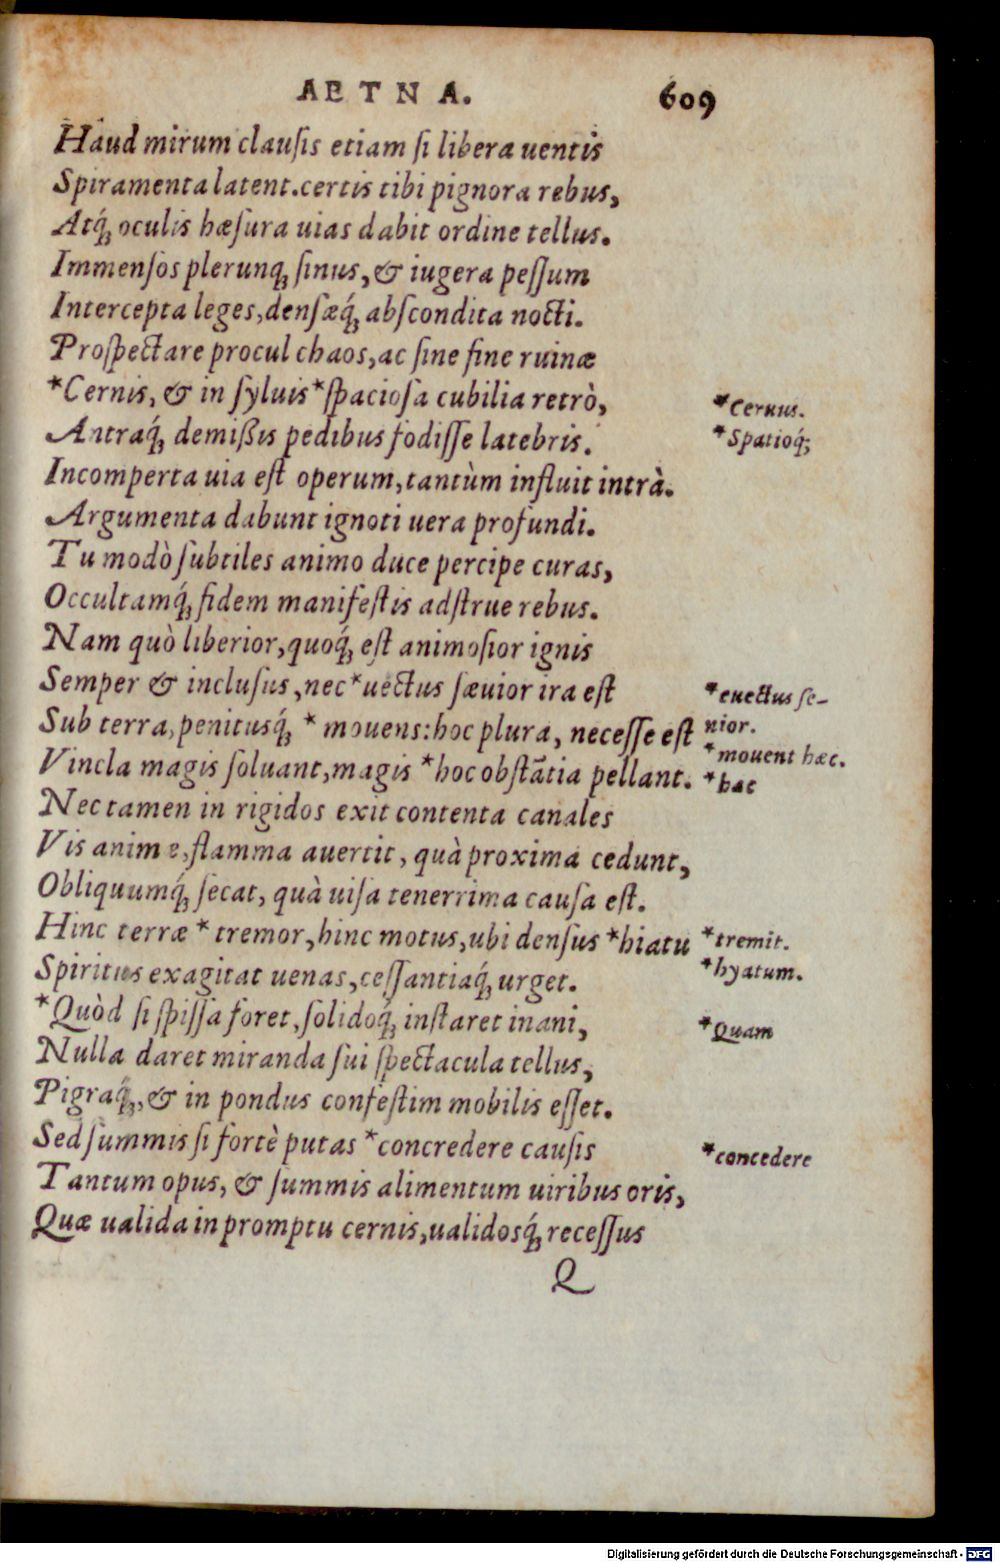 AETNA. 609
Haud mirum clauſis etiam ſi libera uentis
Spiramenta latent. certis tibi pignora rebus,
Atq́ꝫ oculis hæſura uias dabit ordine tellus.
Immenſos plerunqꝫ ſinus, & iugera peſſum
Intercepta leges, denſæq́ꝫ abſcondita nocti.
Proſpectare procul chaos, ac ſine fine ruinæ
*Cernis, & in ſyluis *ſpacioſa cubilia retrò, *Cernus.
Antraq́ꝫ demißis pedibus fodiſſe latebris. *Spatioq́ꝫ
Incomperta uia eſt operum, tantùm influit intrà.
Argumenta dabunt ignoti uera profundi.
Tu modò ſubtiles animo duce percipe curas,
Occultamq́ꝫ fidem manifeſtis adſtrue rebus.
Nam quò liberior, quoq́ꝫ eſt animoſior ignis
Semper & incluſus, nec *uectus ſæuior ira eſt *euectus ſe-
Sub terra, penitusq́ꝫ *mouens: hoc plura, neceſſe eſt nior.
*mouent hæc.
Vincla magis ſoluant, magis *hoc obſtãtia pellant. *hac
Nec tamen in rigidos exit contenta canales
Vis animæ, flamma auertit, quà proxima cedunt,
Obliquumq́ꝫ ſecat, quà uiſa tenerrima cauſa eſt.
Hinc terræ *tremor, hinc motus, ubi denſus *hiatu *tremit.
Spiritus exagitat uenas, ceſſantiaq́ꝫ urget. *hyatum.
*Quòd ſi ſpiſſa foret, ſolidoq́ꝫ inſtaret inani, *Quam
Nulla daret miranda ſui ſpectacula tellus,
Pigraq́ꝫ, & in pondus confeſtim mobilis eſſet.
Sed ſummis ſi fortè putas *concredere cauſis *concedere
Tantum opus, & ſummis alimentum uiribus oris,
Quæ ualida in promptu cernis, ualidosq́ꝫ receſſus
Q
Digitalisierung gefördert durch die Deutsche Forschungsgemeinschaft - DFG